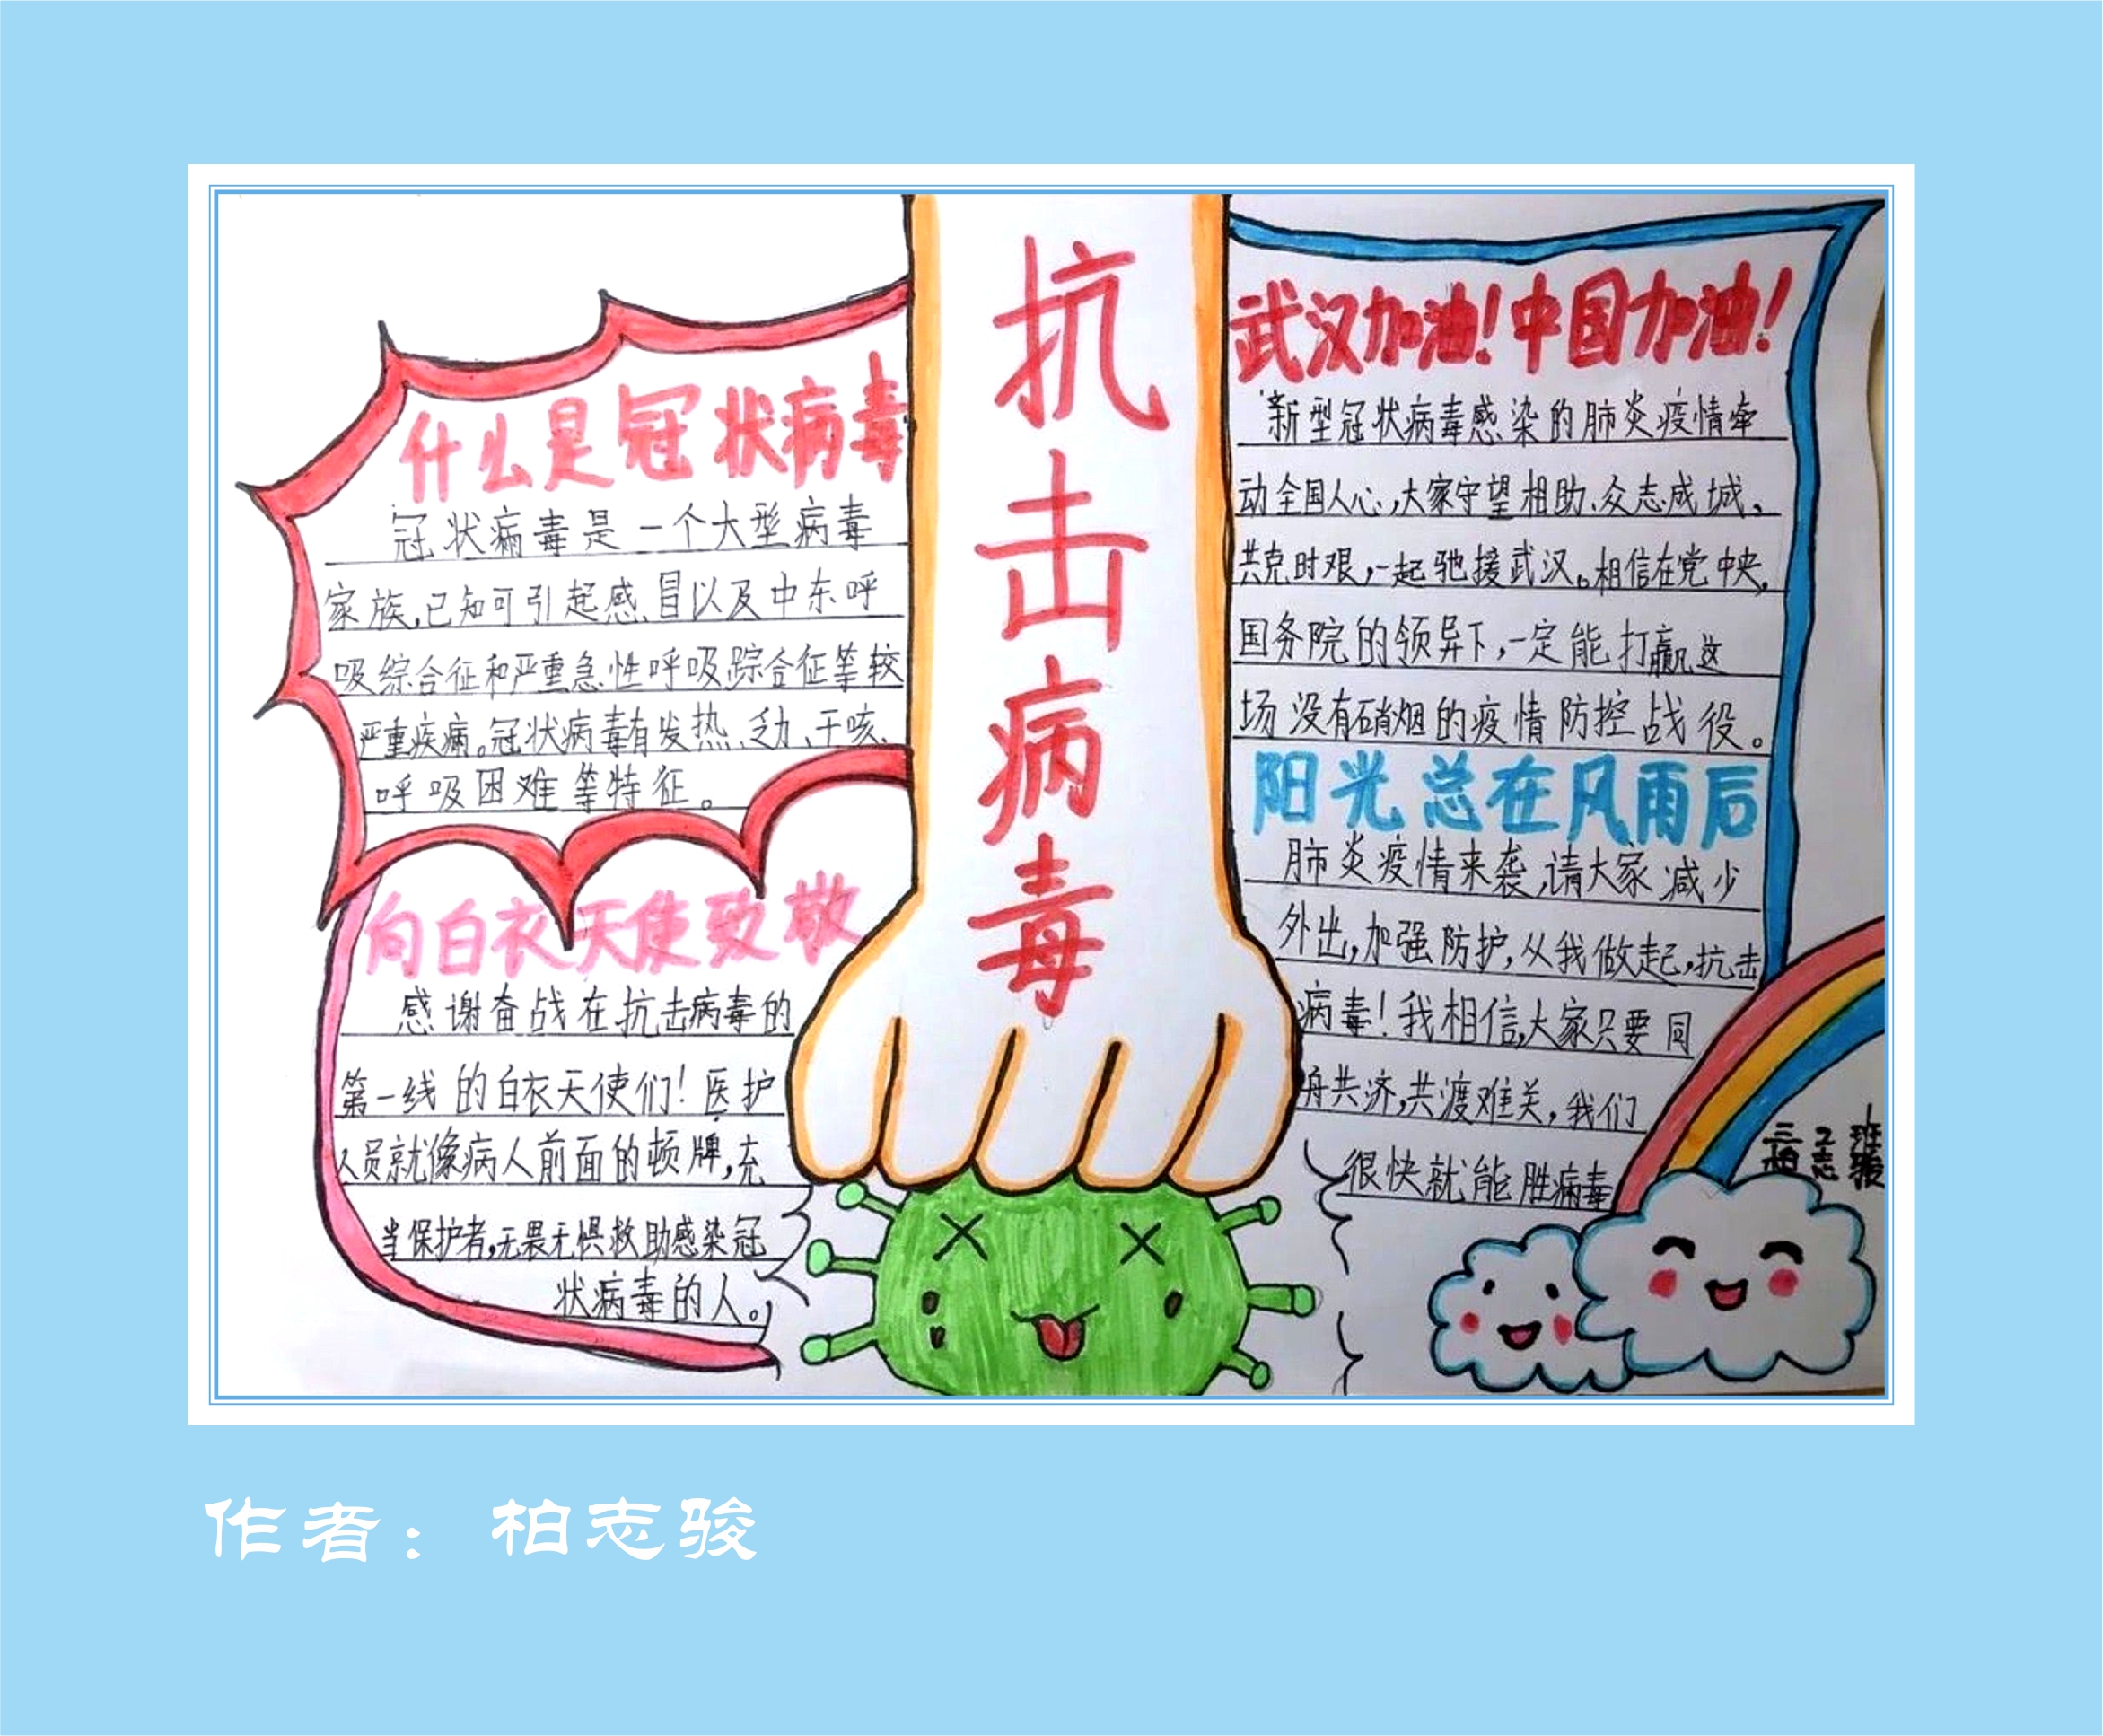 什么是冠状病毒
冠状病毒是一个大型病毒
家族,已知可引起感冒以及中东呼
吸综合征和严重急性呼吸踪合征等较
严重疾病。冠状病毒有发热、乏力、干咳、
呼吸困难等特征。
向白衣天使致敬
感谢奋战在抗击病毒的
第一线的白衣天使们!医护
人员就像病人前面的顿牌,充
当保护者,无畏无惧救助感染冠
状病毒的人。
抗
击
病
毒
武汉加油!中国加油!
新型冠状病毒感染的肺炎疫情牵
动全国人心,大家守望相助、众志成城,
共克时艰,一起驰援武汉。相信在党中央,
国务院的领导下,一定能打赢这
场没有硝烟的疫情防控战役。
阳光总在风雨后
肺炎疫情来袭,请大家减少
外出,加强防护,从我做起,抗击
病毒!我相信,大家只要同
舟共济,共渡难关,我们
很快就能胜病毒
三2班
柏志骏
作者：柏志骏